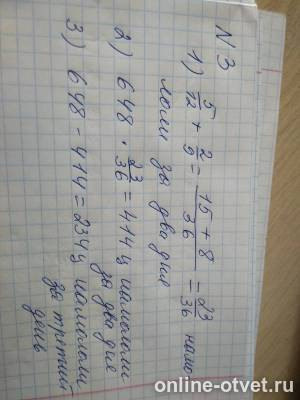 N 3
1) 5/12 + 2/9 = 15 + 8/36 = 23/36 намо-
лоли за два дня
2) 648 · 23/36 = 414 ц намололи
за два дня
3) 648 - 414 = 234 ц намололи
за третий
день
online-otvet.ru